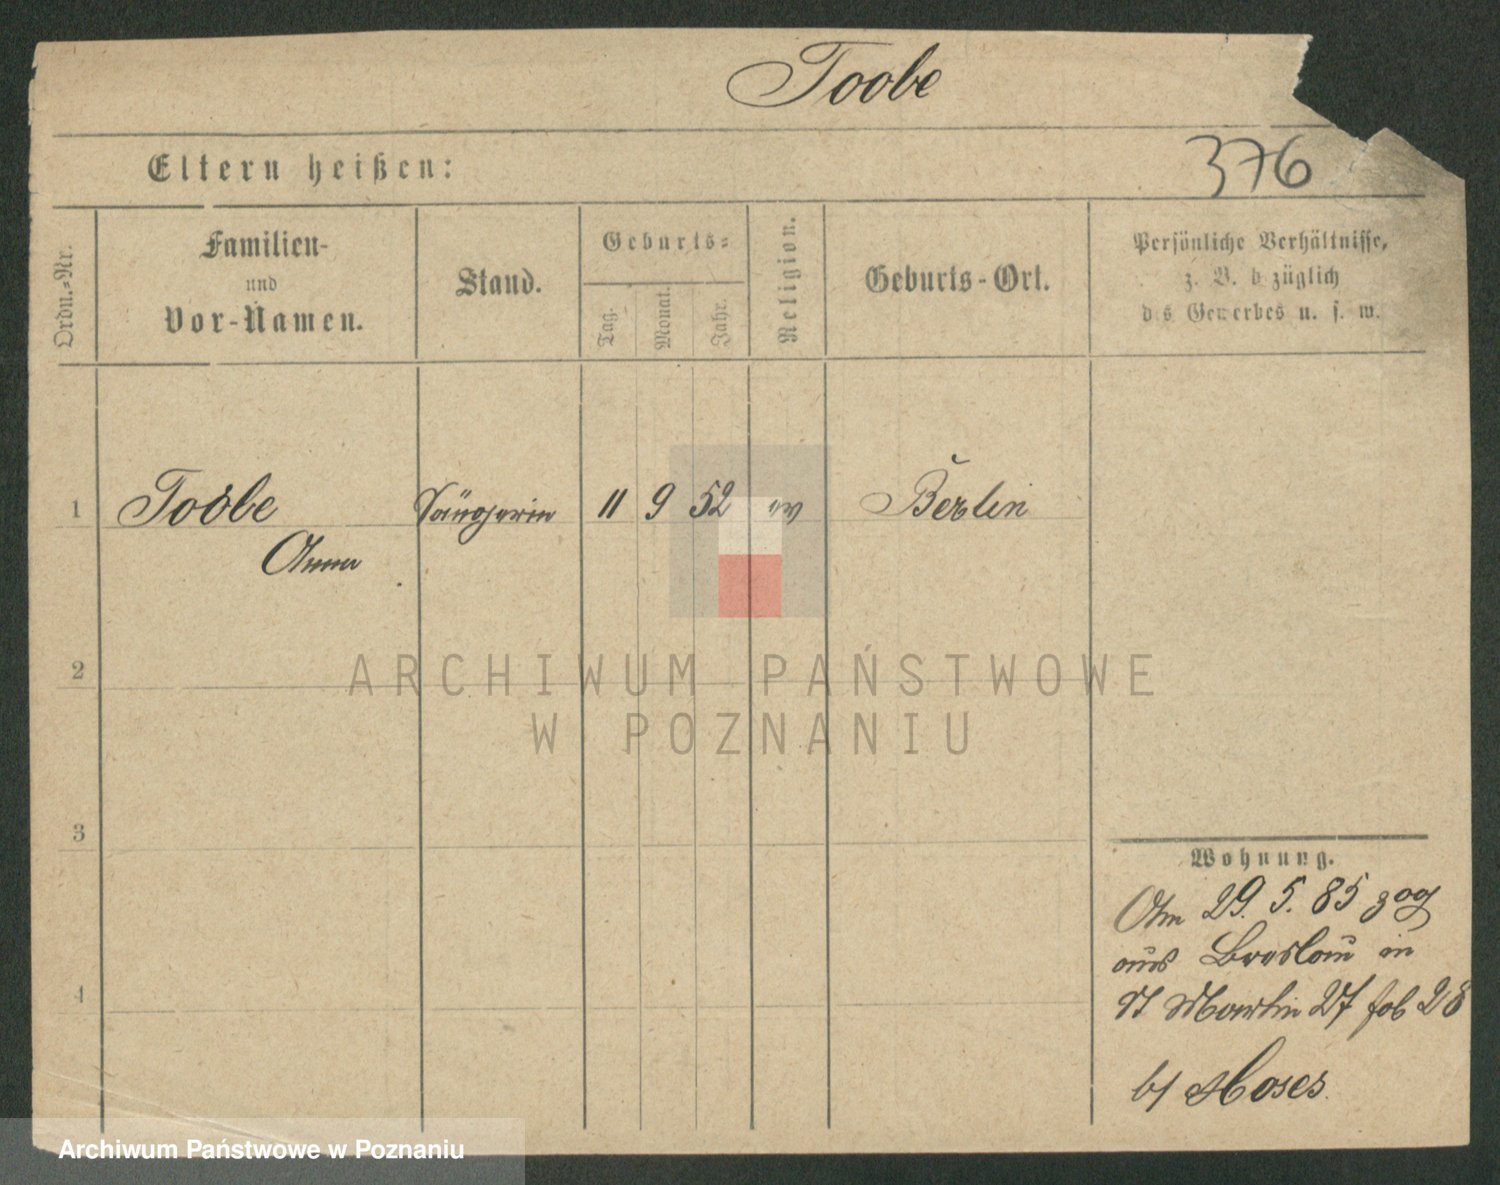 Toobe
376
Eltern heißen:
Ordn.-Nr.
Familien-
und
Vor-Namen.
Stand.
Geburts-
Tag.
Monat.
Jahr.
Religion.
Geburts-Ort.
Persönliche Verhältnisse,
z. B. bezüglich
des Gewerbes u. s. w.
1 Toobe Sängerin 11 9 52 ev Berlin
Anna
2
3
4
Wohnung.
Am 29. 5. 85 zog
aus Breslau in
St Martin 27 fol 28
b/ Moses.
ARCHIWUM PAŃSTWOWE
W POZNANIU
Archiwum Państwowe w Poznaniu